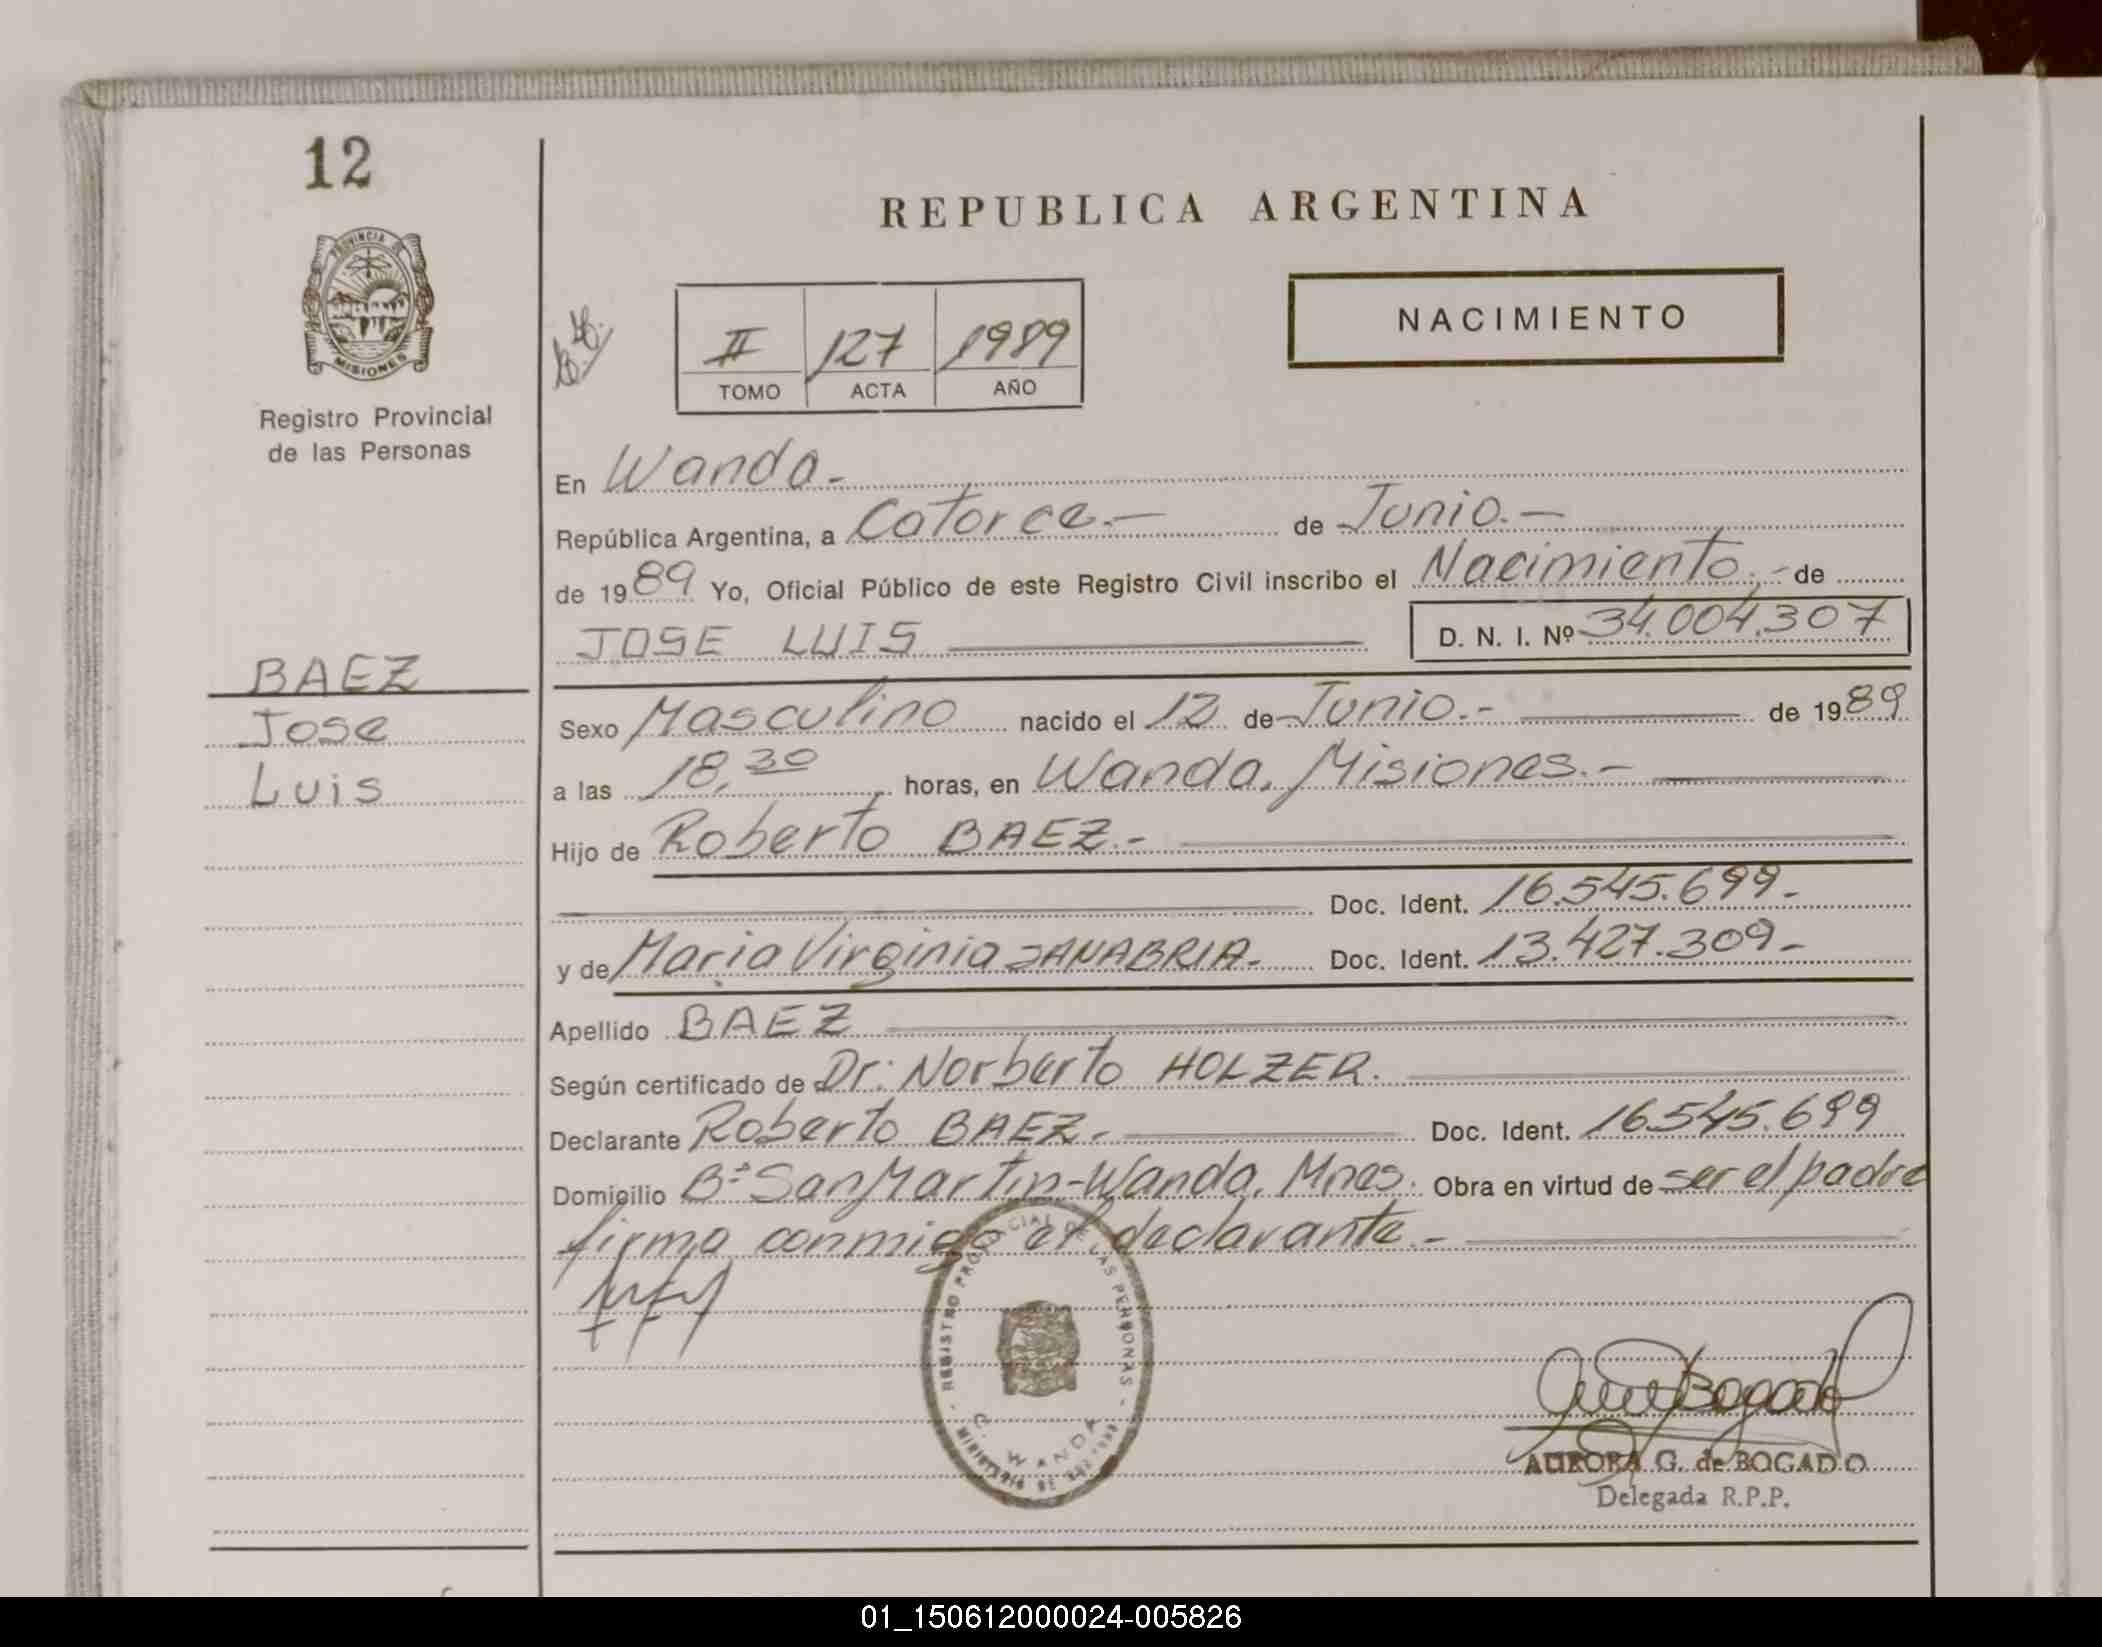 12
REPUBLICA ARGENTINA
PROVINCIA DE
MISIONES
Registro Provincial
de las Personas
II 127 1989
TOMO ACTA AÑO
NACIMIENTO
En Wanda.-
República Argentina, a Catorce.- de Junio.-
de 1989 Yo, Oficial Público de este Registro Civil inscribo el Nacimiento.- de
JOSE LUIS D. N. I. Nº 34.004.307
BAEZ
Jose
Luis
Sexo Masculino nacido el 12 de Junio.- de 1989
a las 18,30 horas, en Wanda, Misiones.-
Hijo de Roberto BAEZ.-
Doc. Ident. 16.545.699-
y de Maria Virginia SANABRIA.- Doc. Ident. 13.427.309-
Apellido BAEZ
Según certificado de Dr: Norberto HOLZER.
Declarante Roberto BAEZ.- Doc. Ident. 16545.699
Domicilio Bº San Martin-Wanda, Mnes. Obra en virtud de ser el padre
firma conmigo el declarante.-
REGISTRO PROVINCIAL DE LAS PERSONAS
WANDA
MINISTERIO DE
AURORA G. de BOGADO
Delegada R.P.P.
01_150612000024-005826